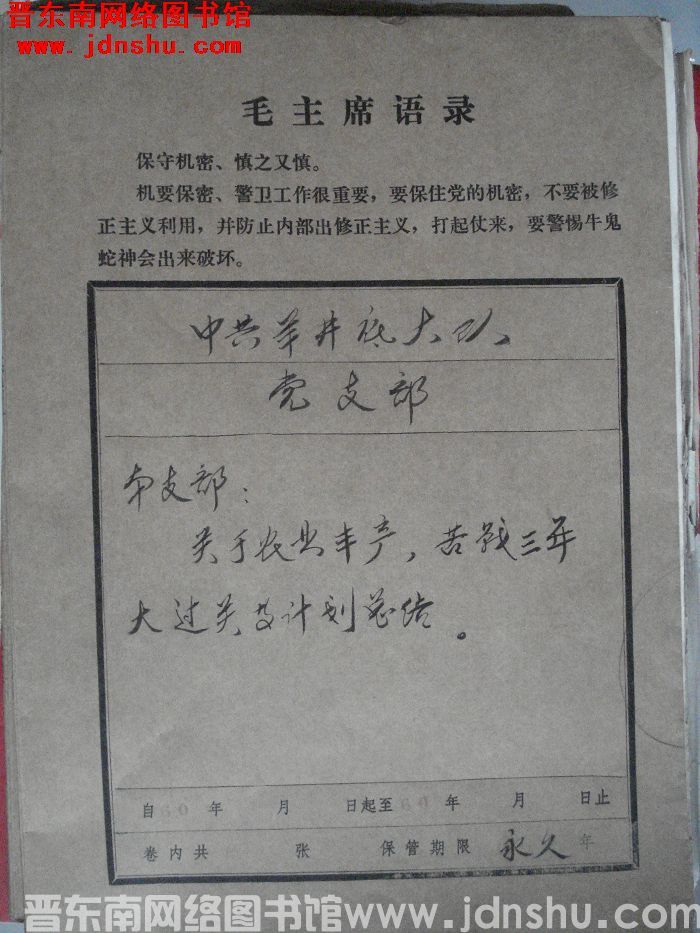 晋东南网络图书馆
www.jdnshu.com
毛主席语录
保守机密、慎之又慎。
机要保密、警卫工作很重要，要保住党的机密，不要被修
正主义利用，并防止内部出修正主义，打起仗来，要警惕牛鬼
蛇神会出来破坏。
中共羊井底大队
党支部
本支部：
关于农业丰产，苦战三年
大过关及计划总结。
自60年 月 日起至60年 月 日止
卷内共 张 保管期限 永久年
晋东南网络图书馆www.jdnshu.com